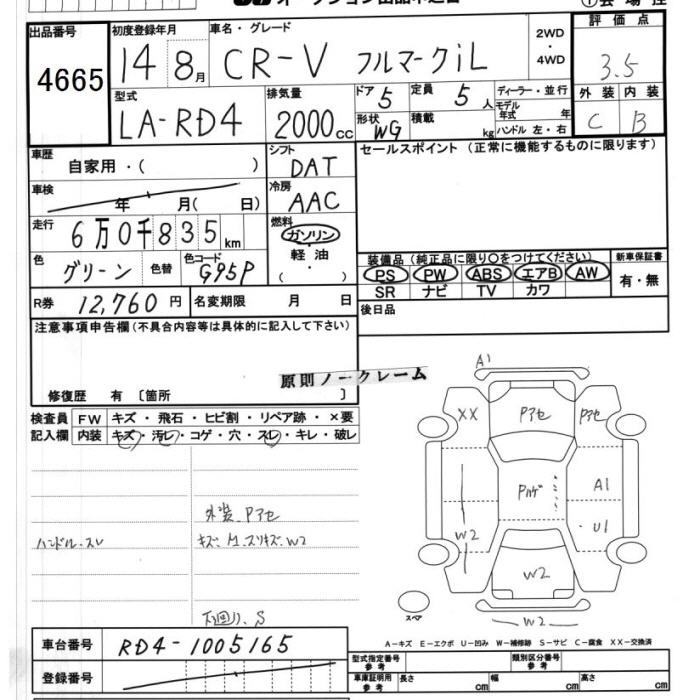 出品番号
4665
初度登録年月
14 8月
車名・グレード
CR-V フルマークiL
2WD
・
4WD
評価点
3.5
外装 内装
C B
型式
LA-RD4
排気量
2000cc
ドア 5
定員 5人
ディーラー・並行
形状 WG
積載 kg
モデル年式 年
ハンドル 左・右
車歴
自家用・( )
シフト
DAT
セールスポイント(正常に機能するものに限ります)
車検
年 月( 日)
冷房
AAC
走行
6万0千835km
燃料
ガソリン
・
軽油
( )
色
グリーン
色替
色コード
G95P
装備品(純正品に限り○をつけてください)
PS PW ABS エアB AW
SR ナビ TV カワ
新車保証書
有・無
R券 12,760円
名変期限 月 日
後日品
注意事項申告欄(不具合内容等は具体的に記入して下さい)
原則ノークレーム
修復歴 有〔箇所 〕
検査員 FW キズ・飛石・ヒビ割・リペア跡・×要
記入欄 内装 キズ・汚レ・コゲ・穴・スレ・キレ・破レ
A1
XX Pアセ Pアセ
Pハゲ A1
W2 U1
W2
W2
スペア
外装 Pアセ
ハンドル・スレ
キズ・
スリキズ・W2
下廻り、S
A-キズ E-エクボ U-凹み W-補修跡 S-サビ C-腐食 XX-交換済
車台番号 RD4-1005165
登録番号
型式指定番号 参考
類別区分番号 参考
車庫証明用 参考 長さ cm 幅 cm 高さ cm